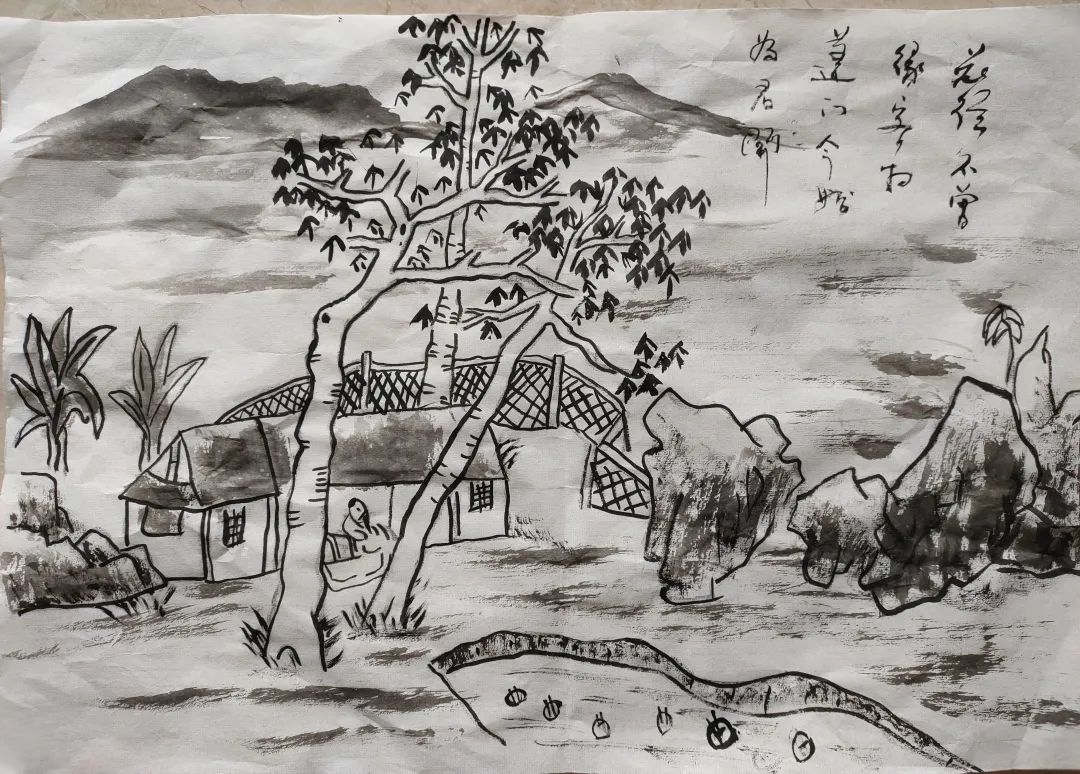 花径不曾
缘客扫
蓬门今始
为君開